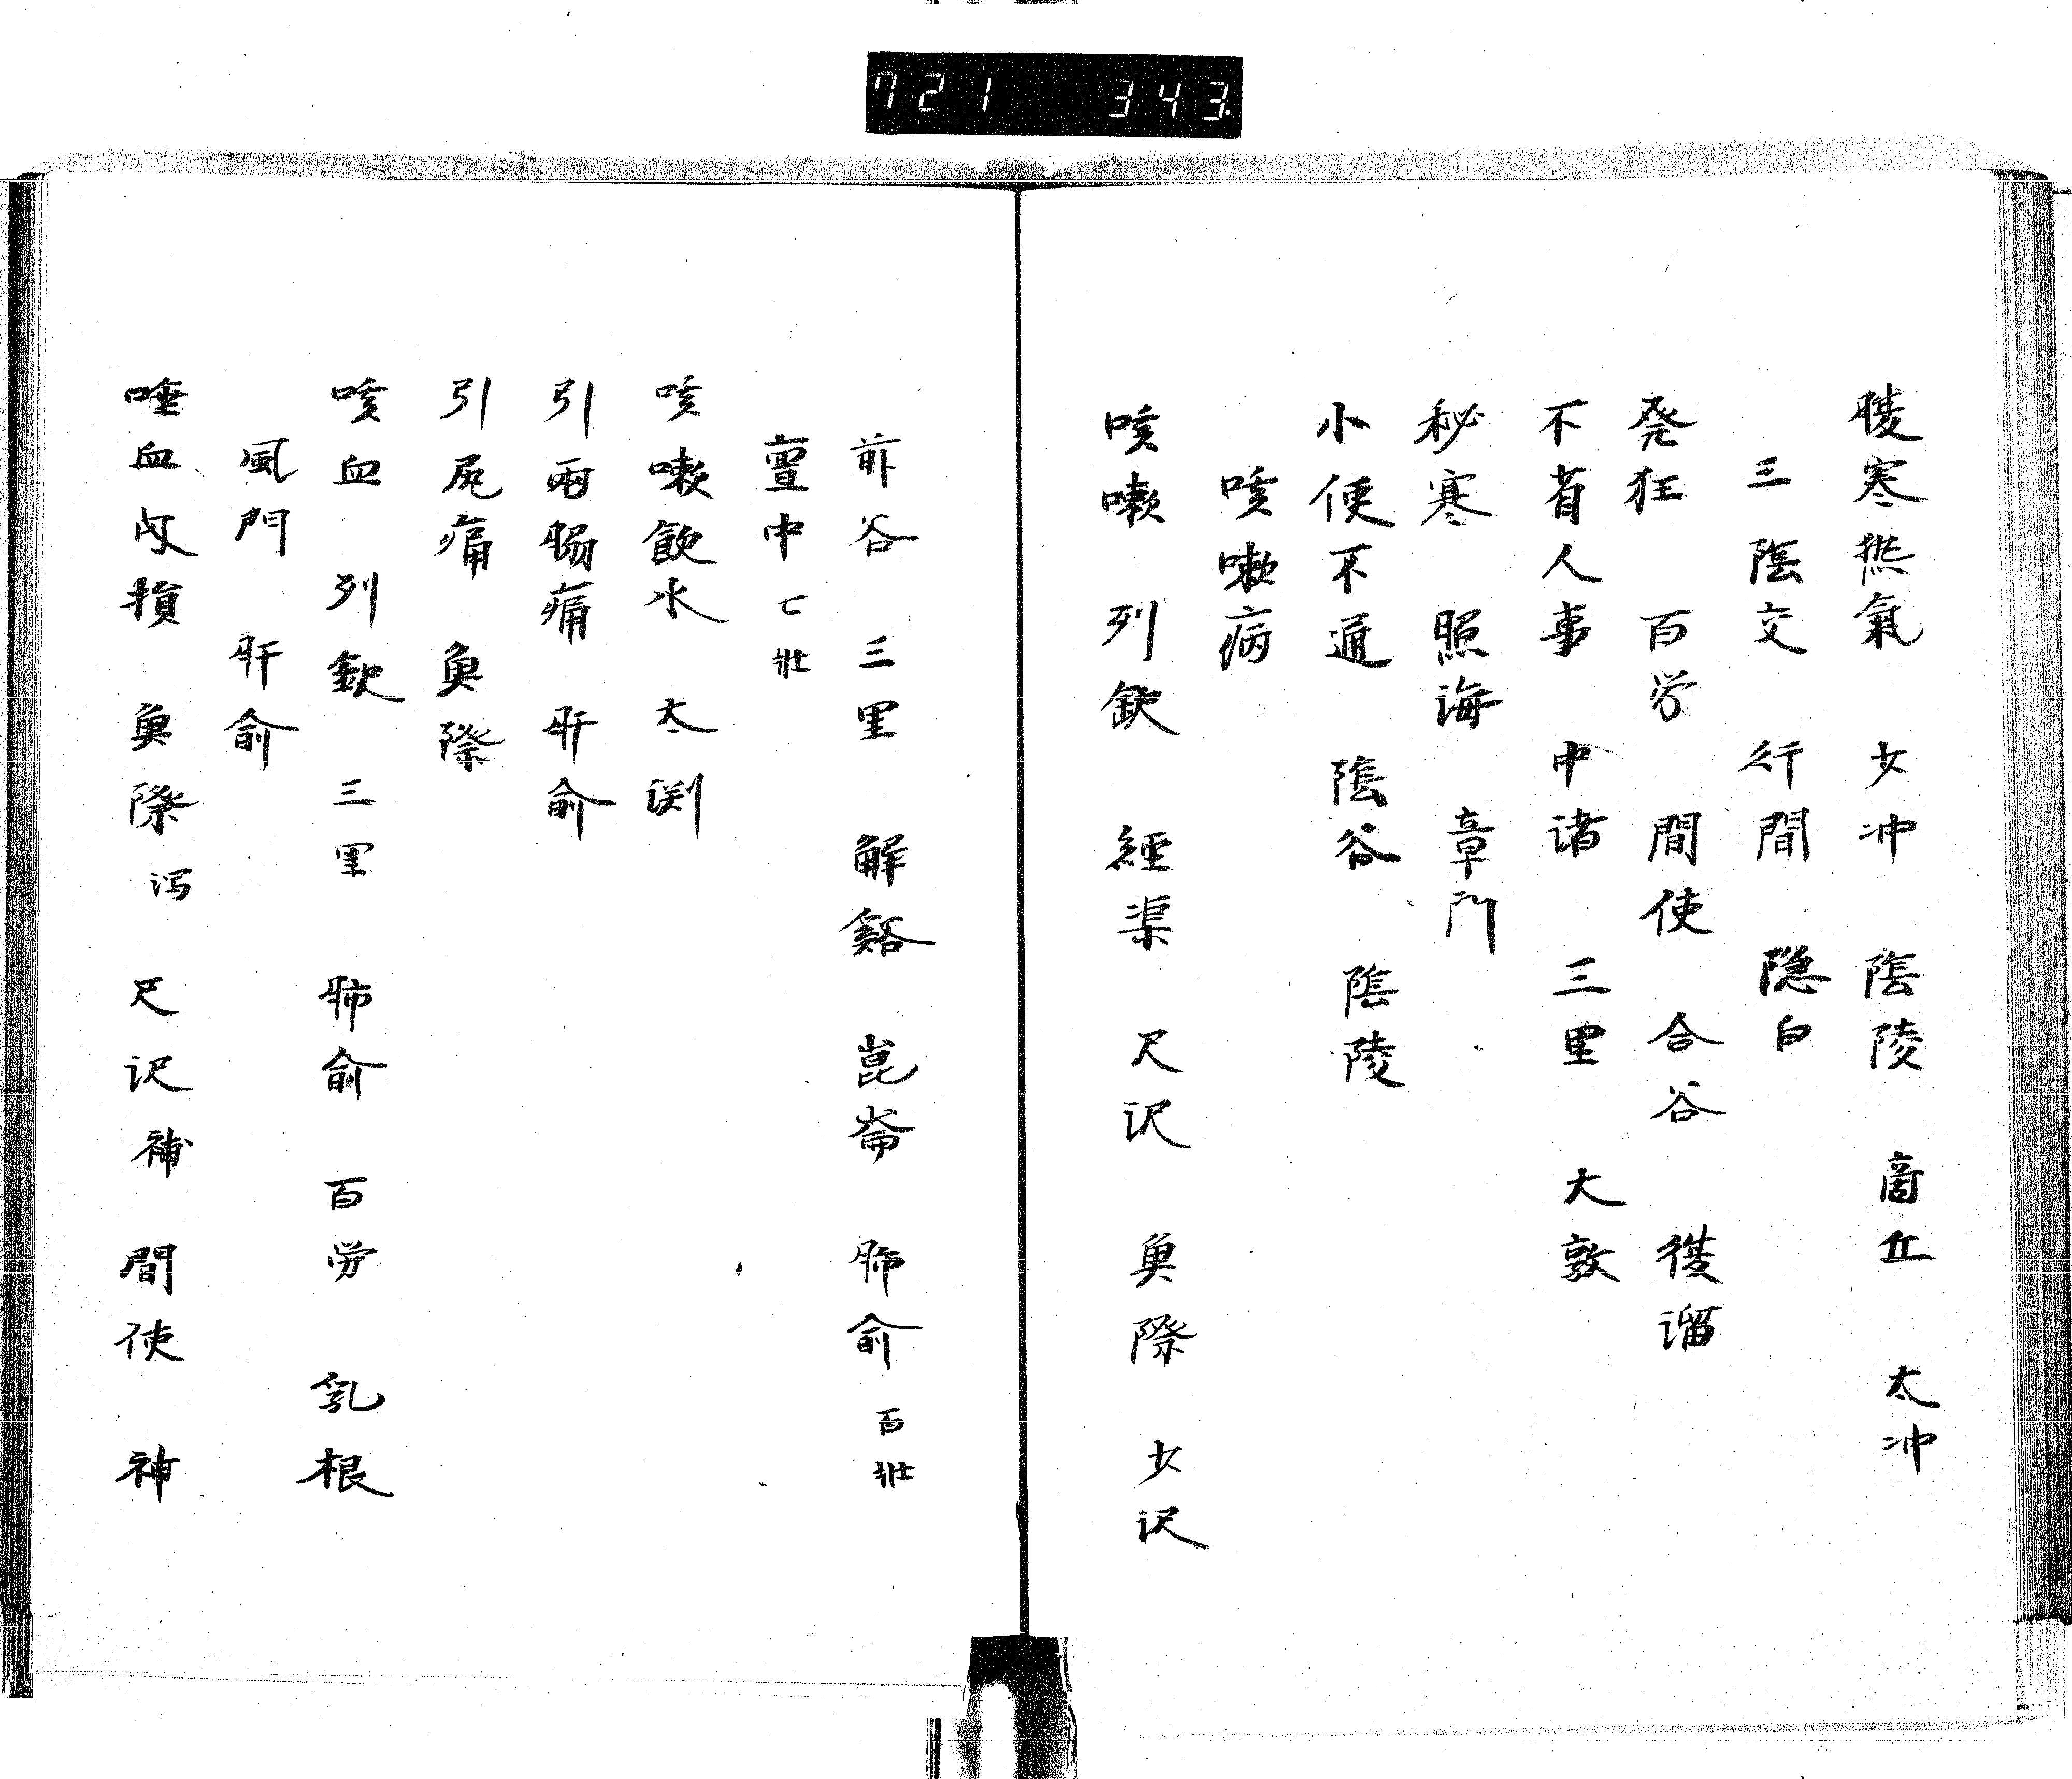 721 343
腹寒热氣 少冲 陰陵 商丘 太冲
三陰交 行間 隐白
発狂 百労 間使 合谷 復溜
不省人事 中渚 三里 大敦
秘塞 照海 章門
小便不通 陰谷 陰陵
咳嗽病
咳嗽 列缺 經渠 尺沢 魚際 少沢
前谷 三里 解谿 崑崙 肺俞 百壯
亶中 七壯
咳嗽飲水 太渕
引兩脇痛 肝俞
引尻痛 魚際
咳血 列缺 三里 肺俞 百労 乳根
風門 肝俞
唾血 損 魚際 泻 尺沢 補 間使 神